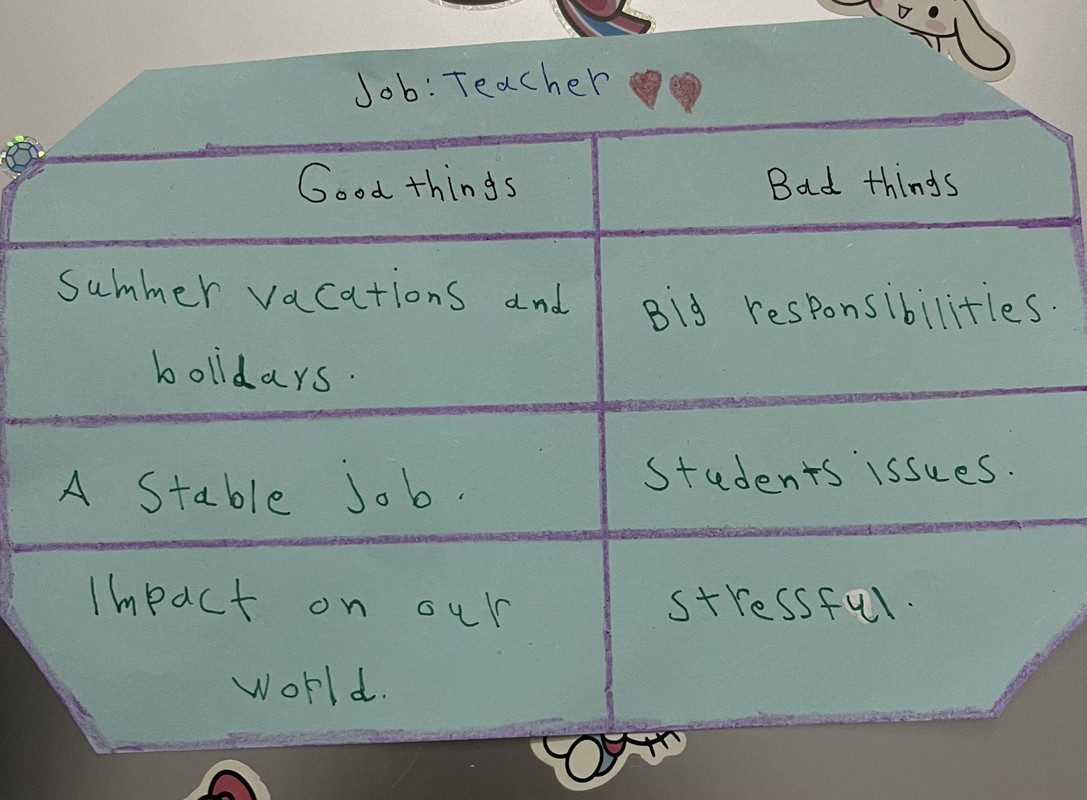 Job: Teacher
Good things
Bad things
Summer vacations and
holidays.
Big responsibilities.
A Stable job.
Students issues.
Impact on our
world.
Stressful.